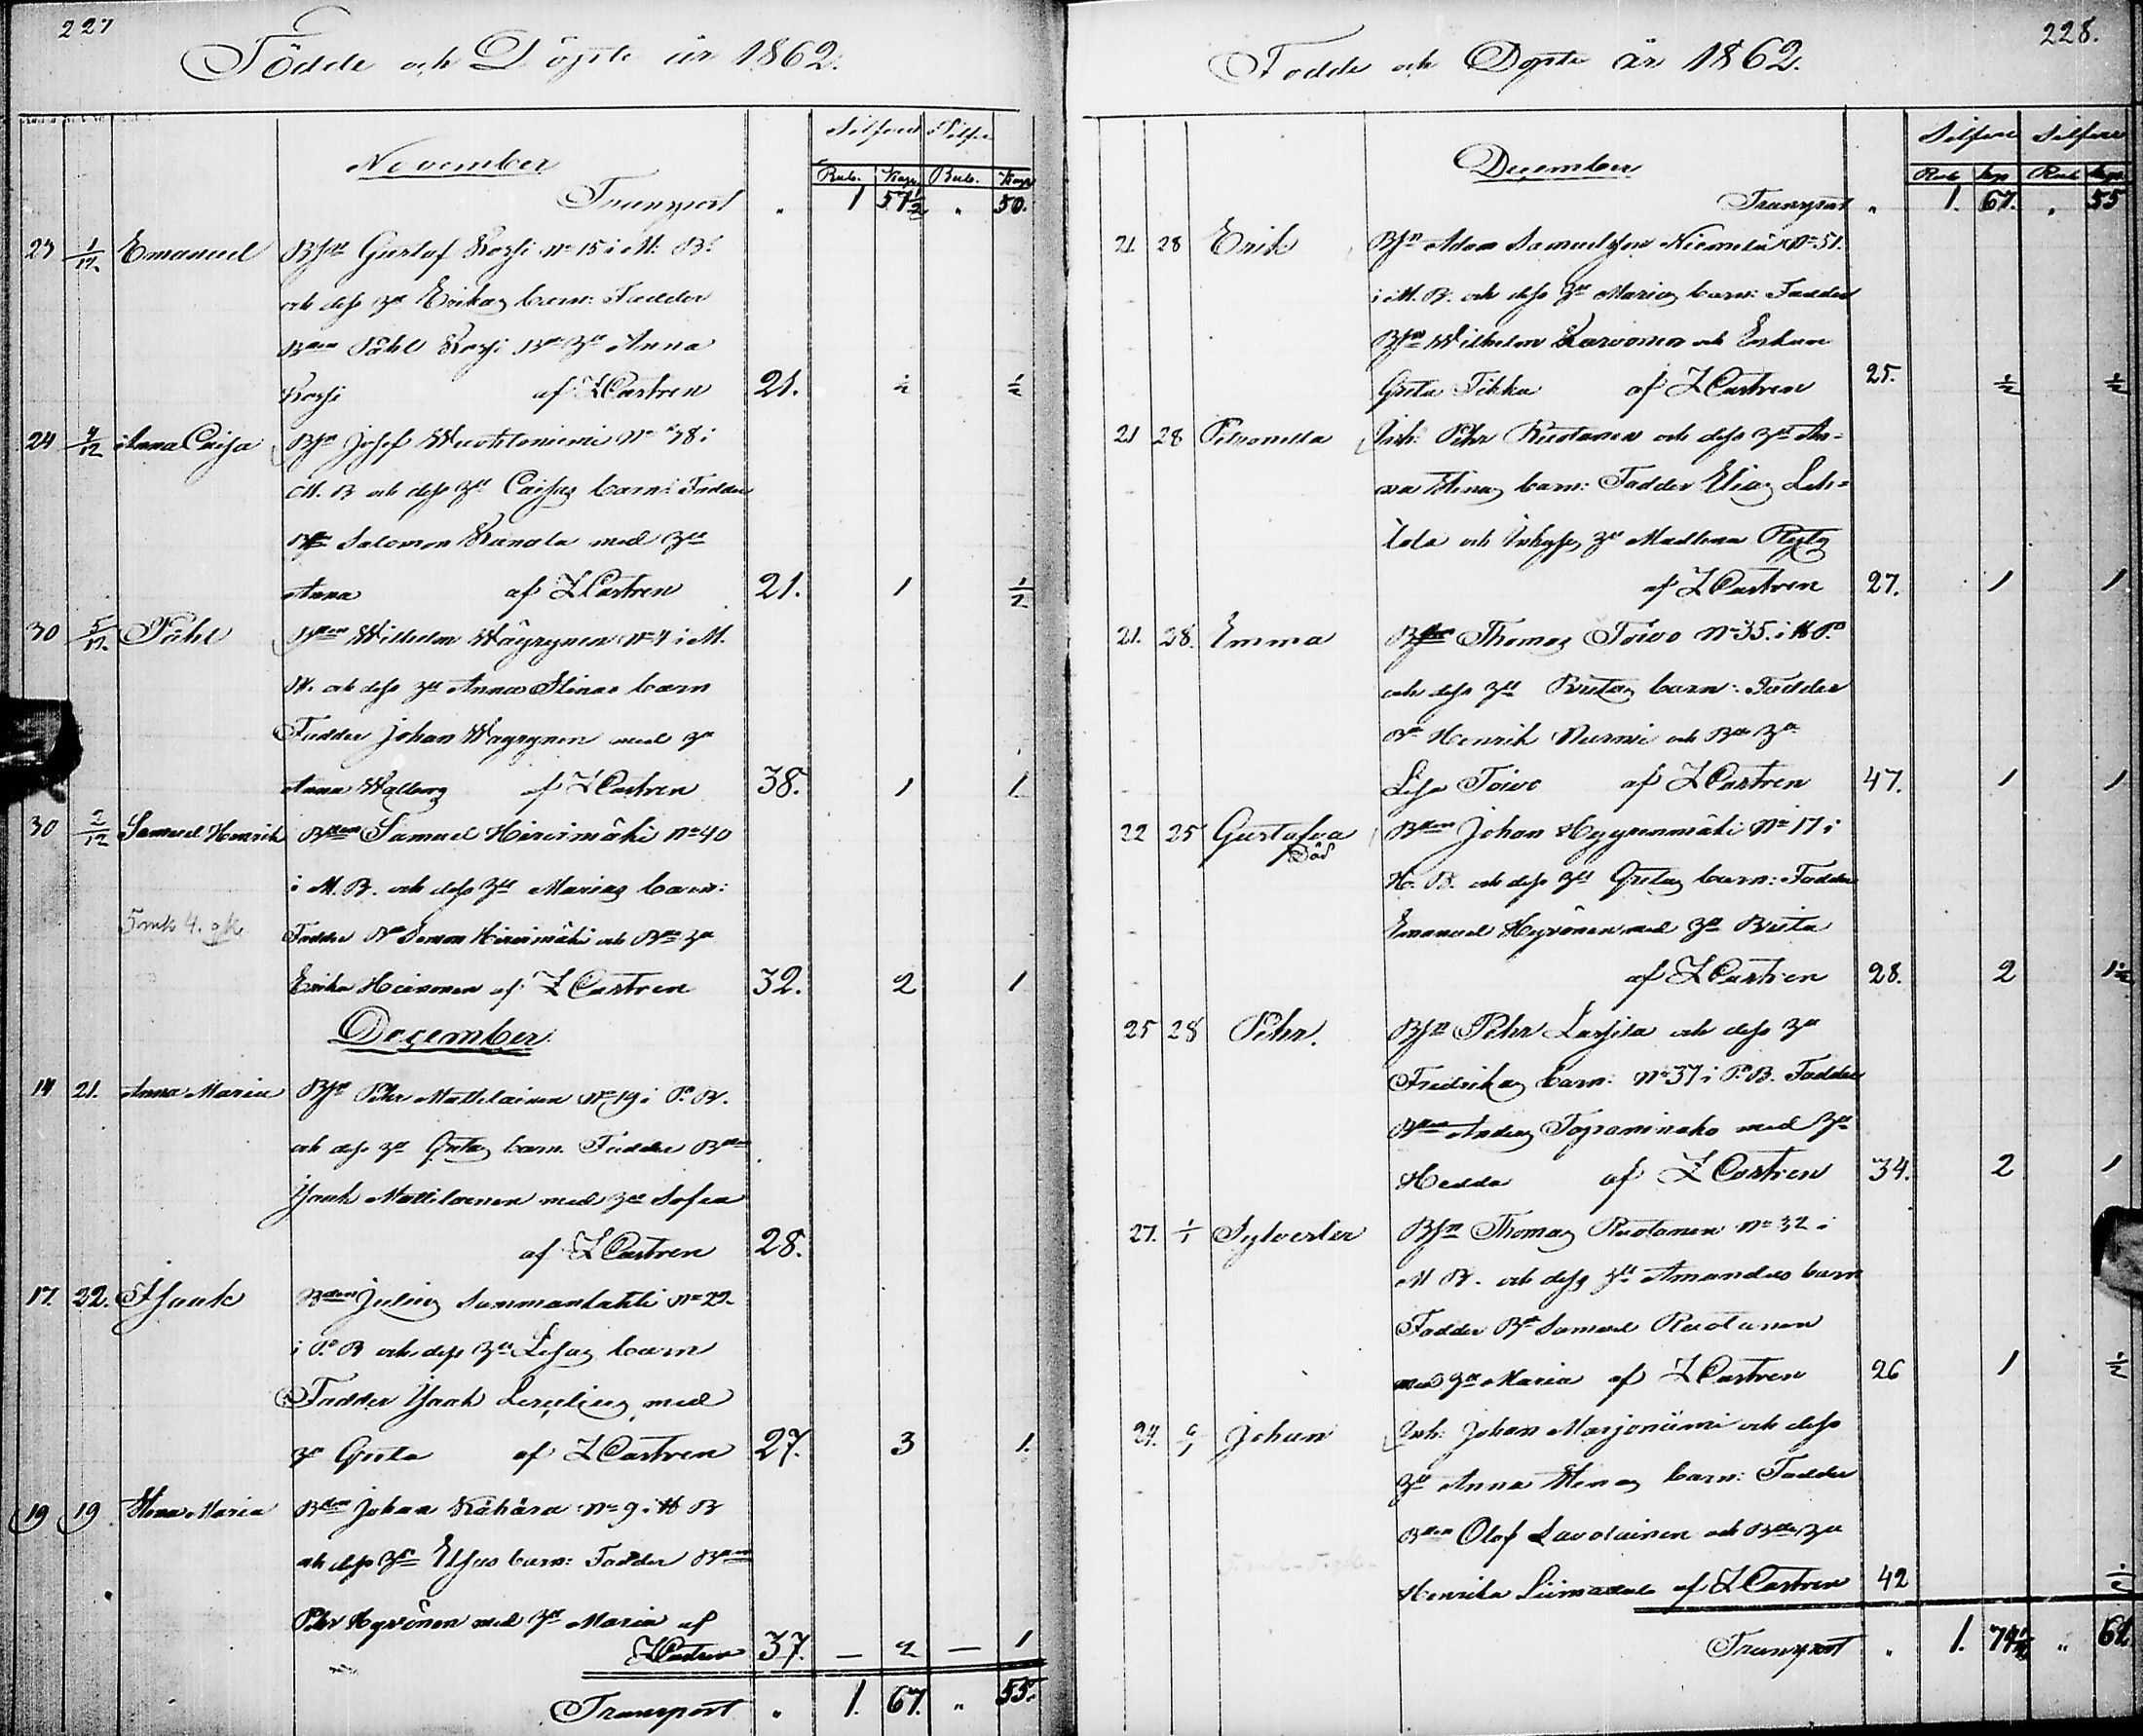 227
Födde och Döpte år 1862.
Silfver Silfver
November
Rub. Kop. Rub. Kop.
Transport " 1 57½ " 50.
23 1/12. Emanuel Bdn Gustaf Korpi No 15 i M. B.
och dess h:u Erikas barn: Fadder
Bden Påhl Korpi Bde h:u Anna
Korpi af Z Castren 21. ½ ½
24 4/12 Anna Caisa Bdn Josef Wuotoniemi No 38 i
M. B och dess h:u Caisas barn: Fadder
Bdn Salomon Kanala med h:u
Anna af Z Castren 21. 1 ½
30 5/12. Påhl Bden Wilhelm Wäyrynen No 4 i M.
B. och dess h:u Anna Stinas barn
Fadder Johan Wäyrynen med h:u
Anna Walborg af Z Castren 38. 1 1.
30 2/12 Samuel Henrik Bden Samuel Hirvimäki No 40
i M. B. och dess h:u Marias barn:
5 mk 4.
Fadder Bn Simon Hirvimäki och Bde h:u
Erika Heinonen af Z Castren 32. 2 1
December
14 21. Anna Maria Bdn Pehr Mattilainen No 19 i P. B.
och dess h:u Gretas barn. Fadder Bden
Isaak Mattilainen med h:u Sofia
af Z Castren 28.
17. 22. Isaak Bden Julius Sammanlahti No 22
i P. B och dess h:u Lisas barn
Fadder Isaak Lerelius med
h:u Greta af Z Castren 27. 3 1.
19 19. Stina Maria Bden Johan Kähärä No 9 i H B
och dess h:u Elsas barn: Fadder Bden
Pehr Hyvönen med h:u Maria af
Z Castren 37. — 2 — 1
Transport " 1. 67. " 55.
228.
Födde och Döpte år 1862.
Silfver Silfver
December
Rub Kop Rub Kop
Transport " 1. 67. " 55
21. 28 Erik Bdn Adam Samuelsson Niemelä No 51.
i M. B. och dess h:u Marias barn: Fadder
Bdn Wilhelm Karvonen och Enkan
Greta Tikka af Z Castren 25. ½ ½
21 28 Petronella Inh: Pehr Ruotanen och dess h:u An-
na Stinas barn: Fadder Elias Leh-
tola och Inhyses h:u Madlena
af Z Castren 27. 1 1
21. 28. Emma Bden Thomas Toivo No 35. i H P.
och dess h:u Britas barn: Fadder
Bn Henrik Nurmi och Bde h:u
Lisa Toivo af Z Castren 47. 1 1
22 25 Gustafva Bden Johan Hyyrenmäki No 17 i
Död
H. B. och dess h:u Gretas barn: Fadder
Emanuel Hyvönen med h:u Brita
af Z Castren 28. 2 1½
25 28 Pehr. Bdn Pehr Lassila och dess h:u
Fredrikas barn: No 37 i P. B. Fadder
Bden Anders Toparinaho med h:u
Hedda af Z Castren 34. 2 1
27. 1/1 Sylvester Bdn Thomas Ruotanen No 32 i
M B. och dess h:u Amandas barn
Fadder Bn Samuel Ruotanen
med h:u Maria af Z Castren 26 1 ½
27. 6/1 Johan Inh: Johan Marjoniemi och dess
h:u Anna Stinas barn: Fadder
Bden Olof Lavolainen och Bde h:u
Henrika af Z Castren 42 ½
Transport " 1. 74½ " 62.